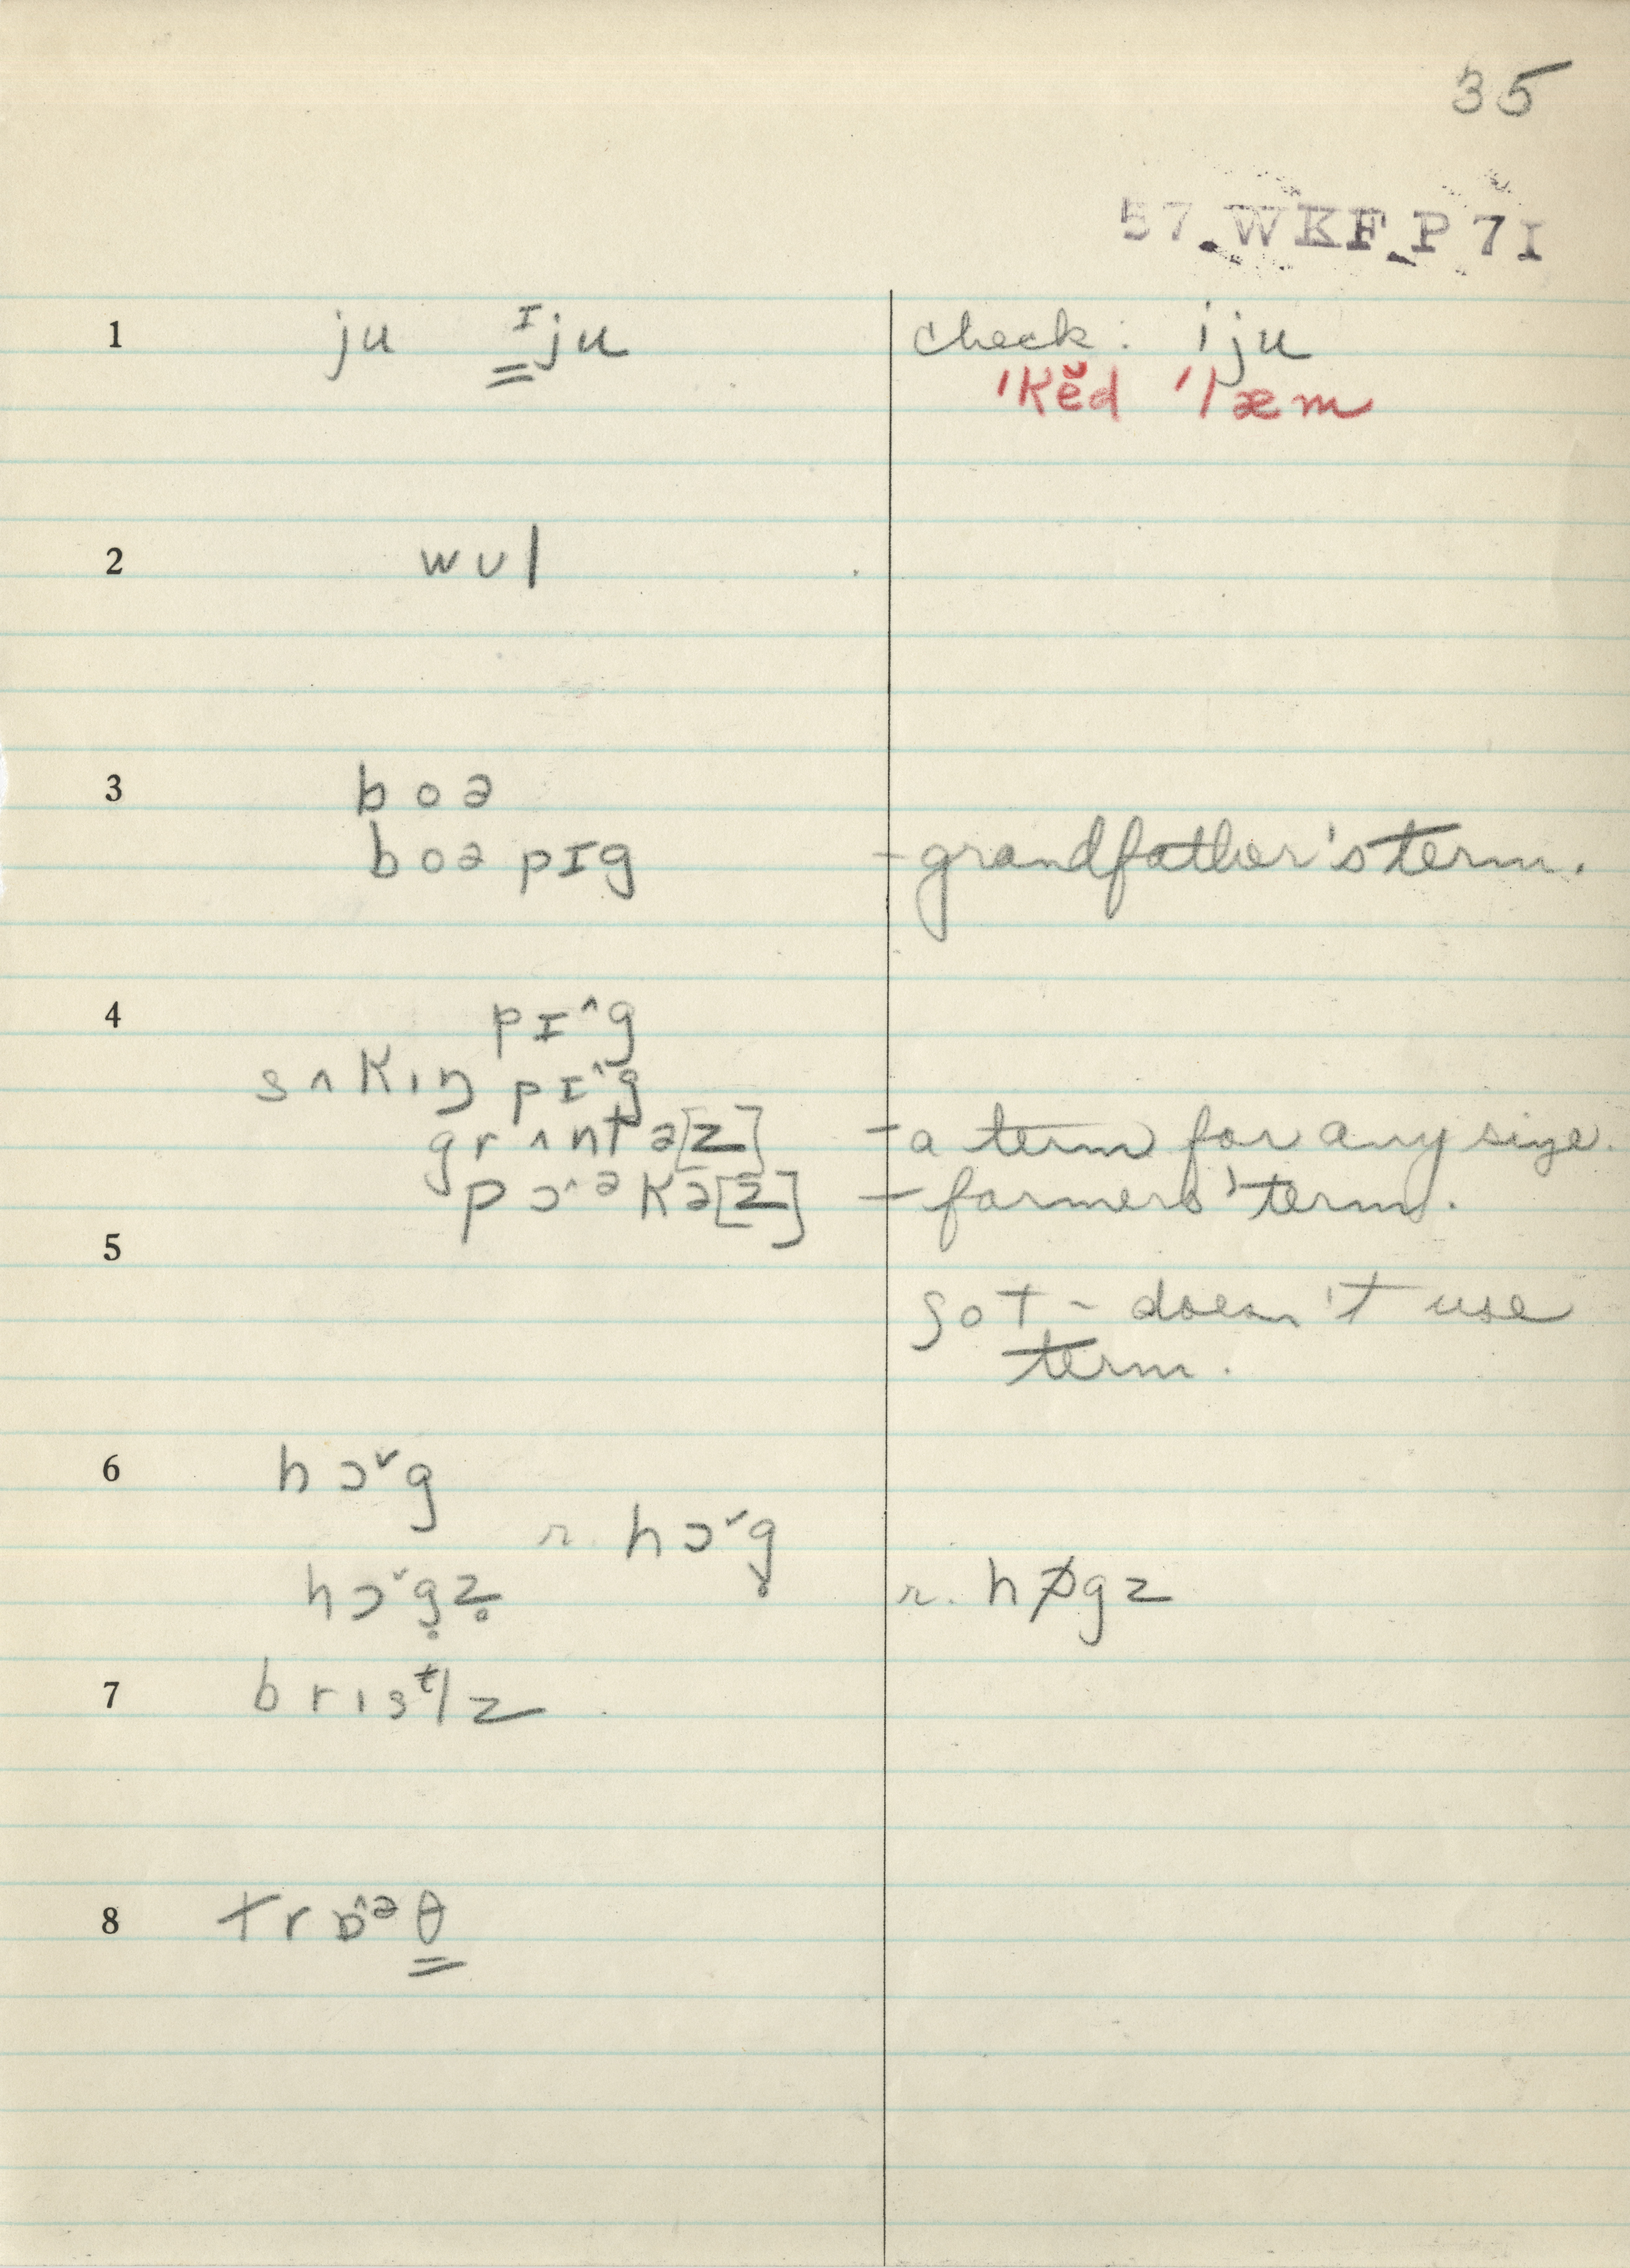 35
57.WKF.P7I
1 ju ᴵju check: iju
'Kĕd 'læm
2 wʊl
3 boə
boə pɪg - grandfather's term.
4 pɪ^g
sʌKɪŋ pɪ^g
grʌntə[z] - a term for any size.
pɔ^əKə[z] - farmers' term.
5
ʃot - doesn't use
term.
6 hɔˇg
r. hɔˇg̥
hɔˇg̥z̥ r. hɒ̸gz
7 brɪsᵗlz
8 trɒ^əθ